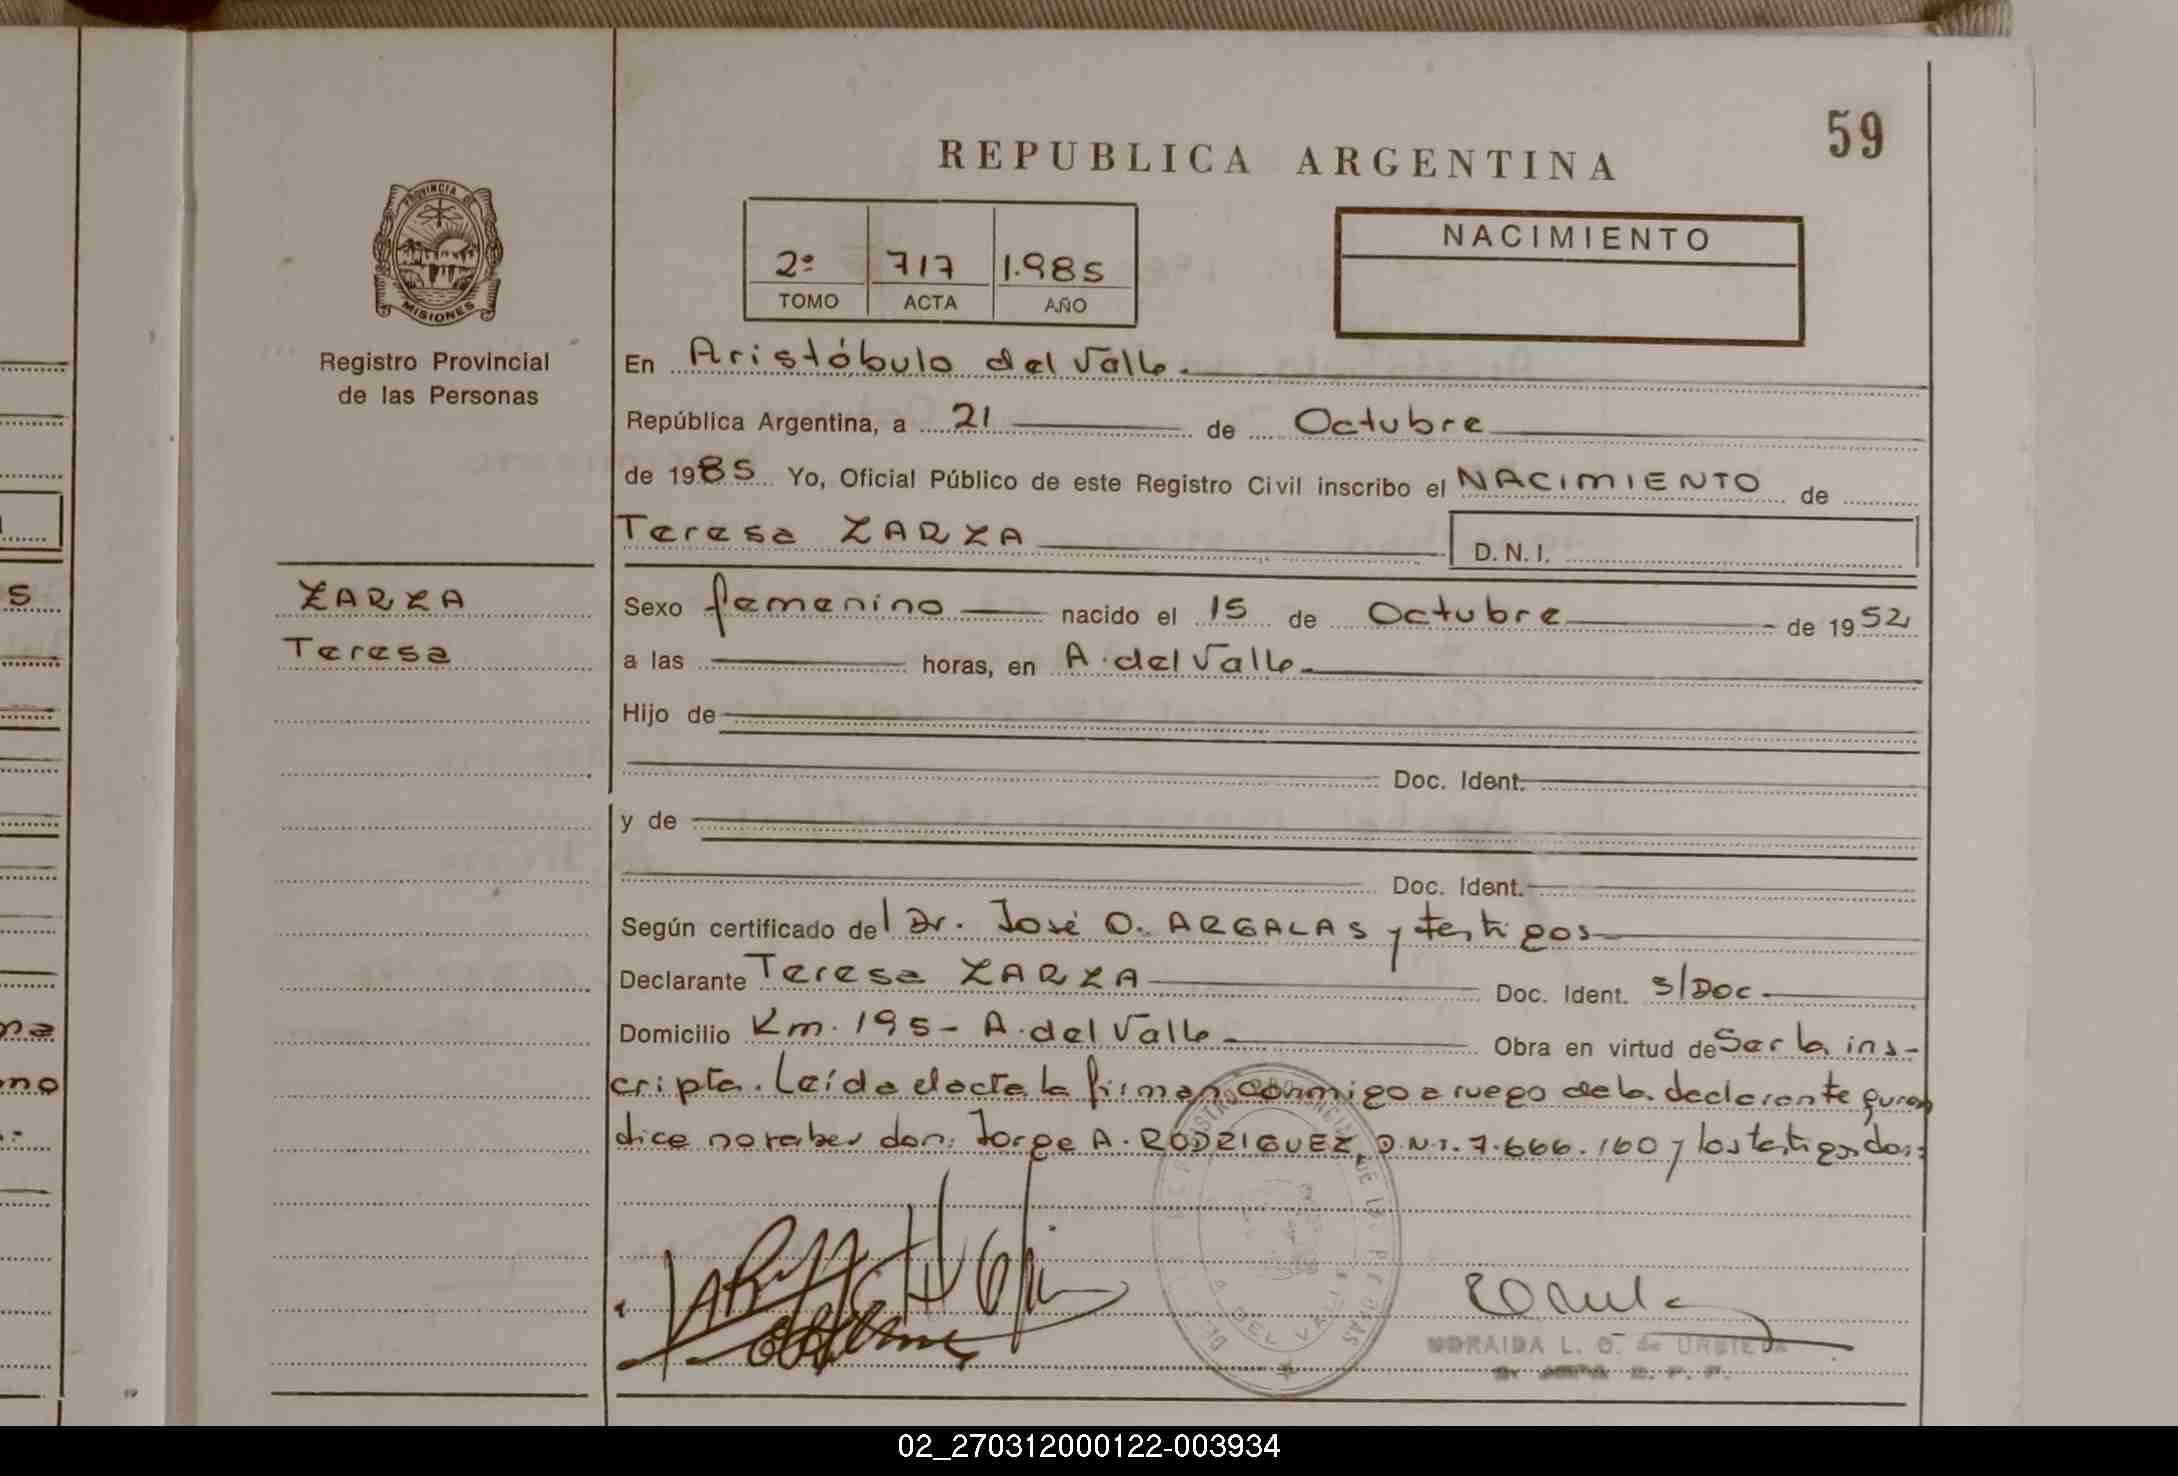 59
REPUBLICA ARGENTINA
PROVINCIA DE
MISIONES
Registro Provincial
de las Personas
2º 717 1.985
TOMO ACTA AÑO
NACIMIENTO
En Aristóbulo del Valle.
República Argentina, a 21 de Octubre
de 1985 Yo, Oficial Público de este Registro Civil inscribo el NACIMIENTO de
Teresa ZARZA D.N.I.
ZARZA
Teresa
Sexo femenino nacido el 15 de Octubre de 1952
a las horas, en A. del Valle
Hijo de
Doc. Ident.
y de
Doc. Ident.
Según certificado del Dr. José O. ARGALAS y testigos
Declarante Teresa ZARZA Doc. Ident. S/Doc.
Domicilio Km. 195 - A. del Valle. Obra en virtud de Ser la ins-
cripta. Leída el acta la firman conmigo a ruego de la declarante quien
dice no saber don: Jorge A. RODRIGUEZ, D.N.I. 7.666.160 y los testigos don:
A DEL VALLE
L. O. de URBIETA
02_270312000122-003934